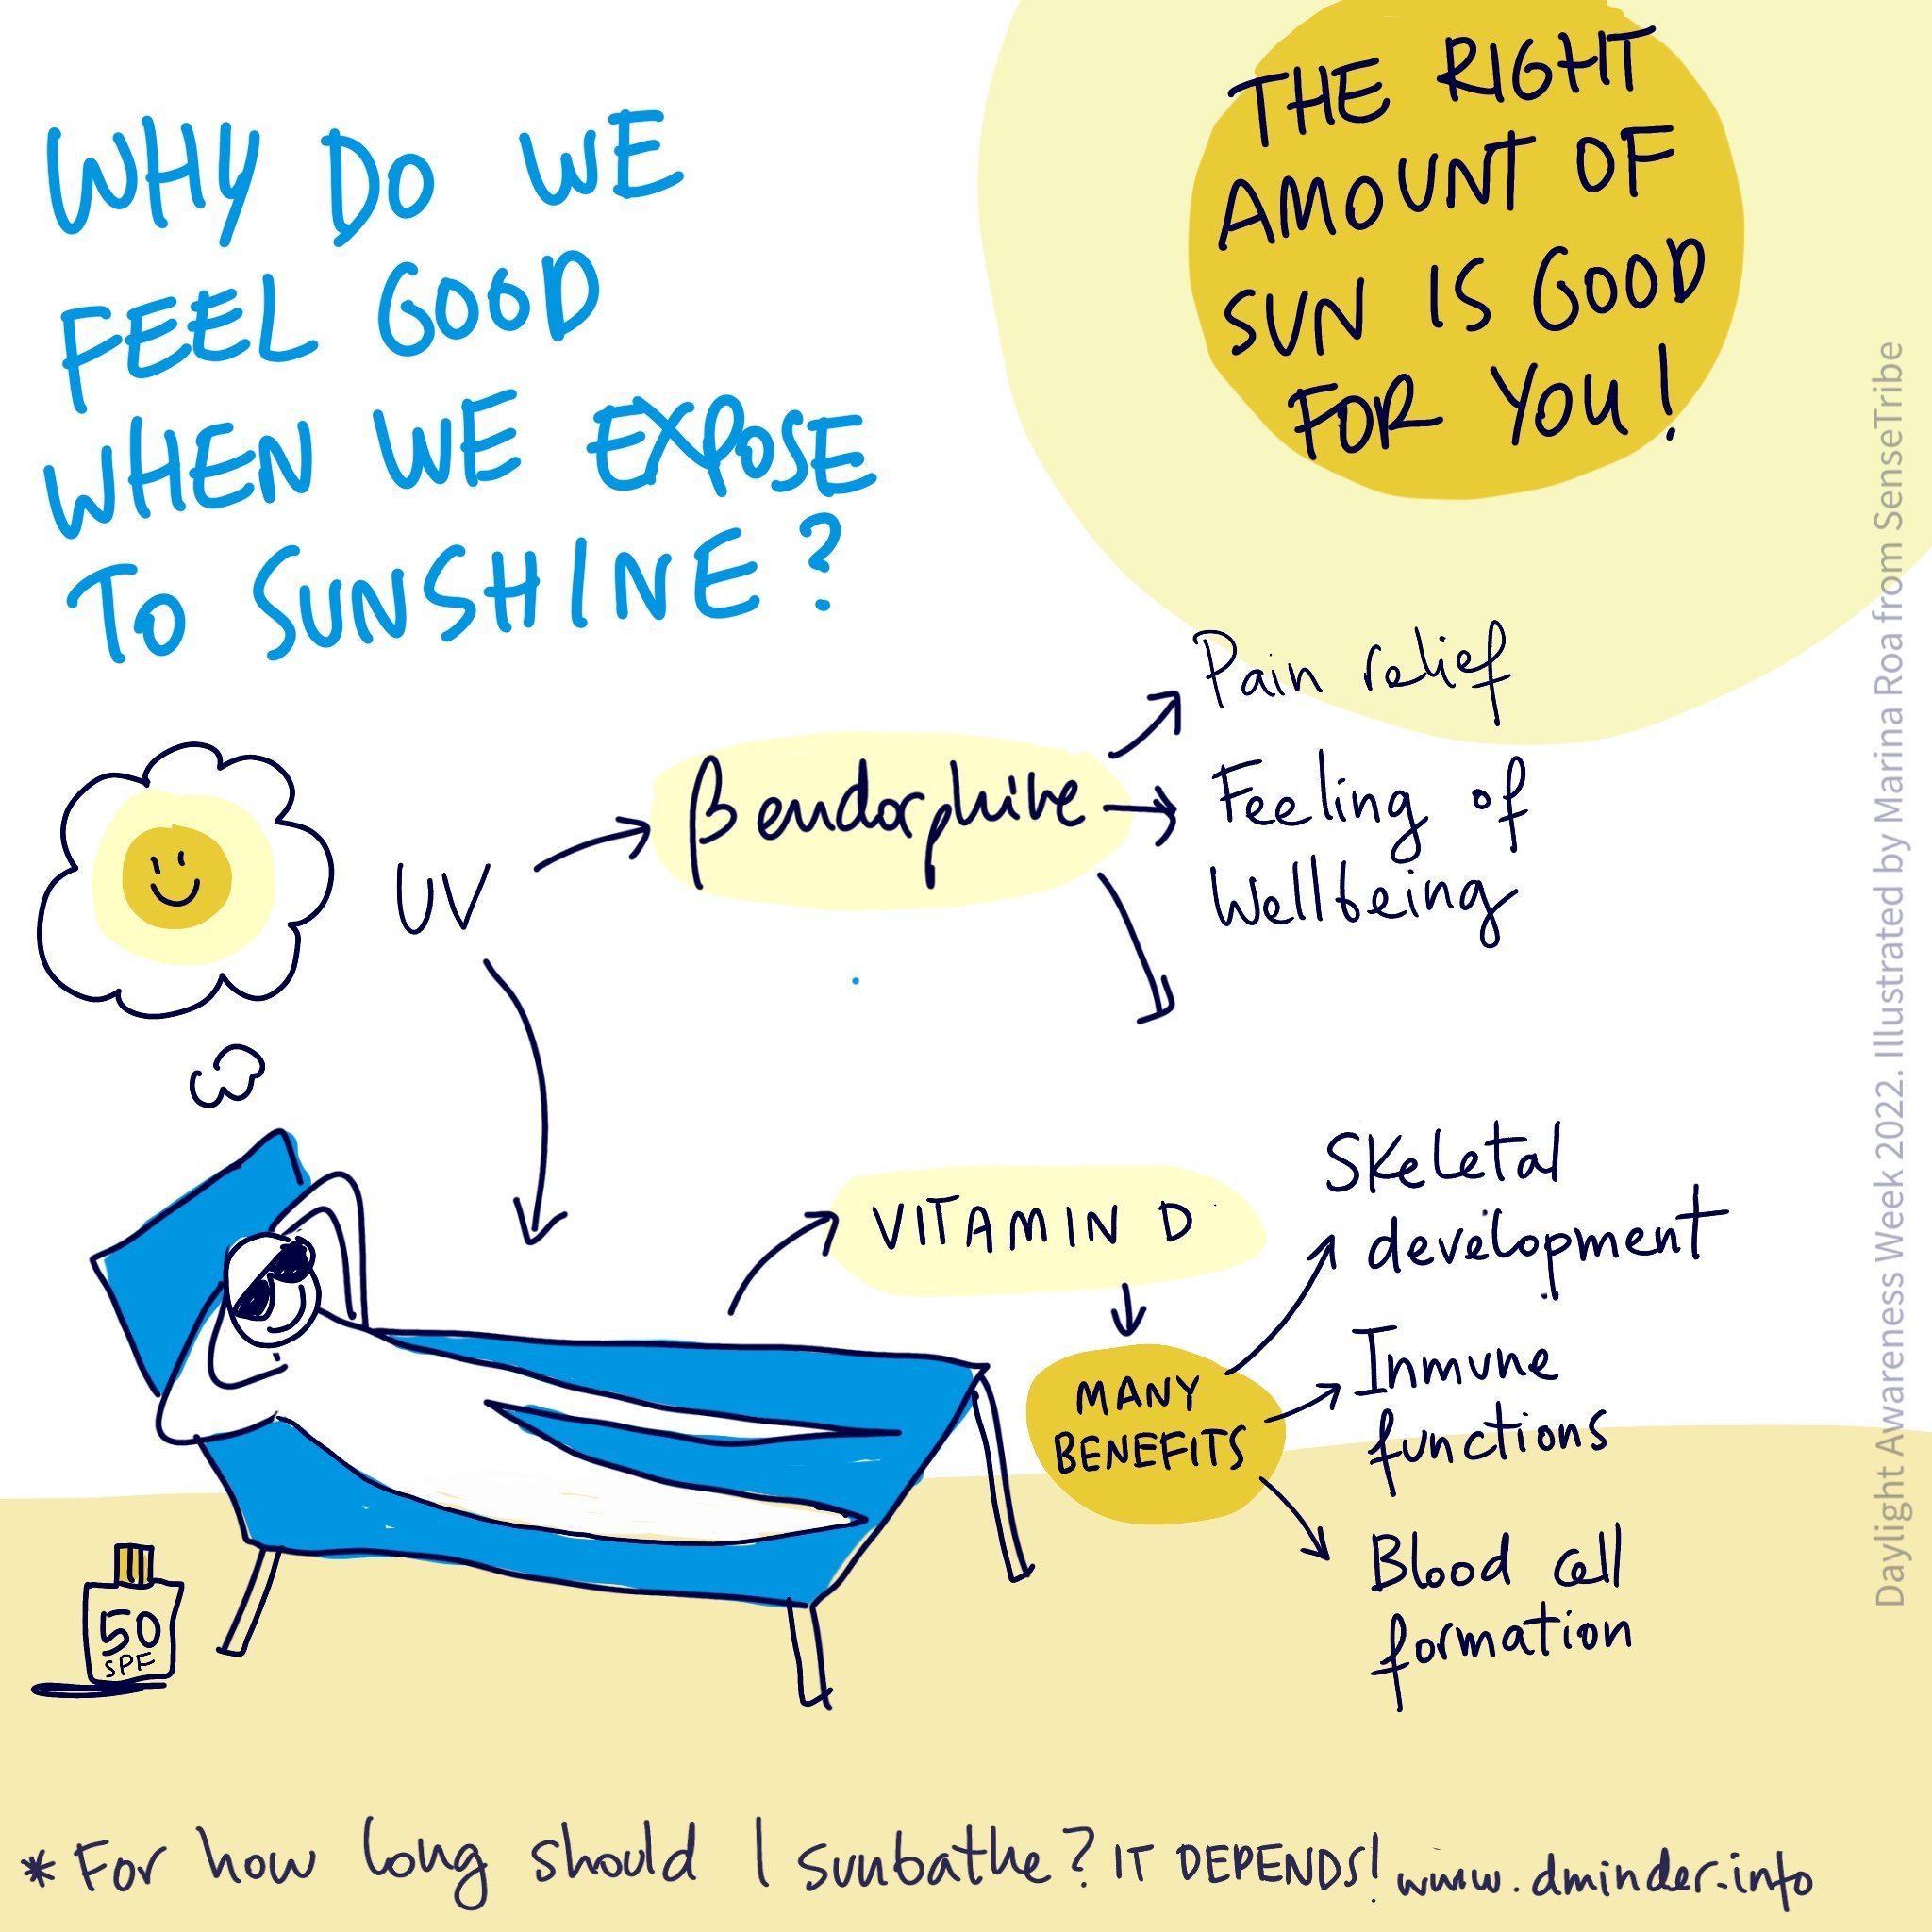 WHY DO WE
FEEL GOOD
WHEN WE EXPOSE
TO SUNSHINE?
THE RIGHT
AMOUNT OF
SUN IS GOOD
FOR YOU!
UV
β endorphine
Pain relief
Feeling of
Wellbeing
VITAMIN D
MANY
BENEFITS
Skeletal
development
Inmune
functions
Blood cell
formation
50
SPF
*For how long should I sunbathe? IT DEPENDS! www.dminder.info
Daylight Awareness Week 2022. Illustrated by Marina Roa from SenseTribe